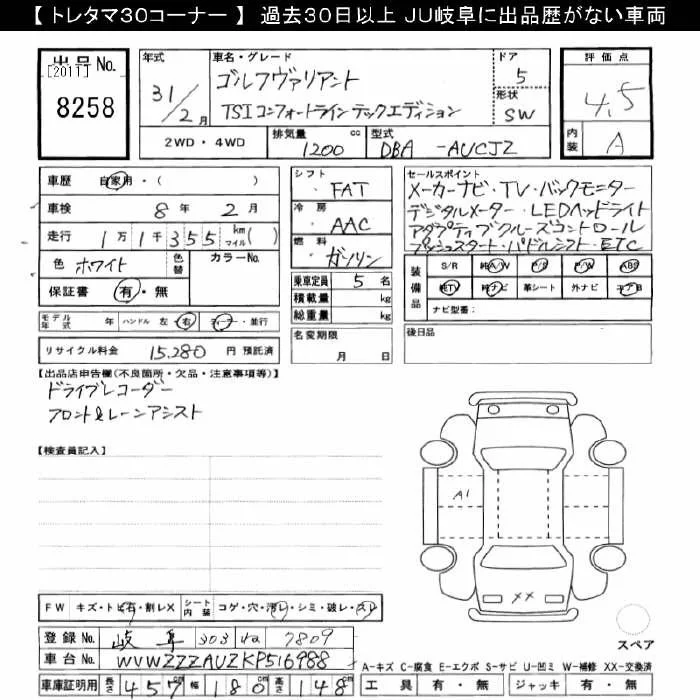 【 トレタマ30コーナー 】 過去30日以上 JU岐阜に出品歴がない車両
出品No.
[2011]
8258
年式
31/2月
車名・グレード
ゴルフヴァリアント
TSIコンフォートラインテックエディション
ドア
5
形状
SW
評価点
4.5
内装
A
2WD・4WD
排気量
1200 cc
型式
DBA -AUCJZ
車歴 自家用・( )
車検 8年 2月
走行 1万1千355 km マイル( )
色 ホワイト 色替 カラーNo.
保証書 有・無
モデル年式 年 ハンドル 左 右 ディーラー・並行
リサイクル料金 15,280 円 預託済
シフト
FAT
冷房
AAC
燃料
ガソリン
乗車定員 5 名
積載量 kg
総重量 kg
名変期限
月 日
セールスポイント
メーカーナビ・TV・バックモニター
デジタルメーター・LEDヘッドライト
アダプティブクルーズコントロール
プッシュスタート・パドルシフト・ETC
装備品
S/R 純A/W P/S P/W ABS
純TV 純ナビ 革シート 外ナビ エアB
ナビ型番:
後日品
【出品店申告欄(不良箇所・欠品・注意事項等)】
ドライブレコーダー
フロント&レーンアシスト
【検査員記入】
A1
XX
スペア
FW キズ・トビ有・割レX シート内装 コゲ・穴・汚レ・シミ・破レ・スレ
登録No. 岐阜 303 7809
車台No. WVWZZZAUZKP516988
A-キズ C-腐食 E-エクボ S-サビ U-凹ミ W-補修 XX-交換済
車庫証明用 長さ 457 幅 180cm 高さ 148cm
工具 有・無 ジャッキ 有・無